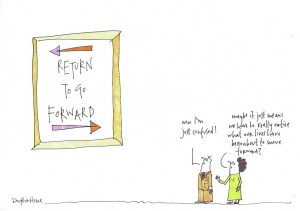 RETURN
TO GO
FORWARD
now I'm
just confused!
maybe it just means
we have to really notice
what our lives have
been about to move
forward?